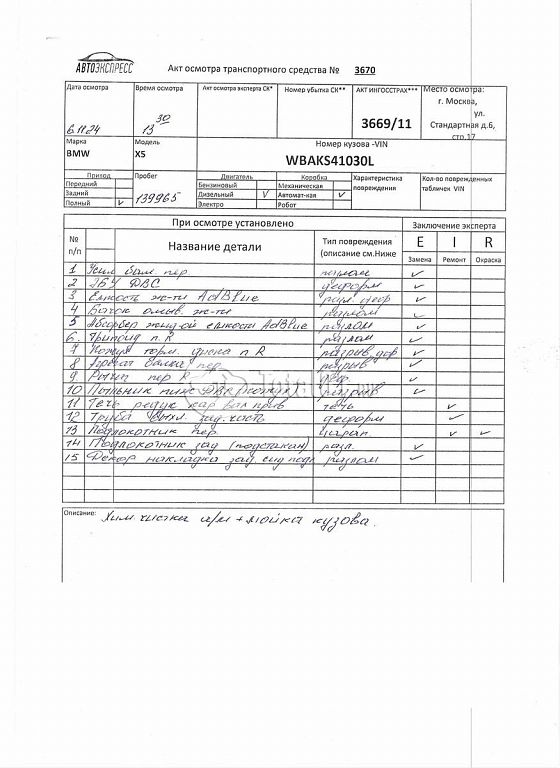 АВТОЭКСПРЕСС
Акт осмотра транспортного средства № 3670
Дата осмотра Время осмотра Акт осмотра эксперта СК* Номер убытка СК** АКТ ИНГОССТРАХ*** Место осмотра:
6.11.24 13 30 3669/11 г. Москва,
ул.
Стандартная д.6,
стр.17
Марка Модель Номер кузова -VIN
BMW X5 WBAKS41030L
Приход Пробег Двигатель Коробка Характеристика повреждения Кол-во поврежденных табличек VIN
Передний Бензиновый Механическая
Задний 139965 Дизельный V Автомат-кая V
Полный V Электро Робот
При осмотре установлено Заключение эксперта
№ п/п Название детали Тип повреждения (описание см.Ниже E I R
Замена Ремонт Окраска
1 Усил бам пер разлом ✓
2 ЭБУ ДВС деформ ✓
3 Емкость ж-ти AdBlue ✓
4 Бачок омыв. ж-ти разлом ✓
5 Абсорбер емкости AdBlue разлом ✓
6. п. R разлом ✓
7 Кожух торм. диска п R разрыв, деф ✓
8 пер разрыв ✓
9 Рычаг пер R деф ✓
10 Пыльник ниж ДВС разрыв ✓
11 Течь редук кар вал прив течь ✓
12 Труба выхл. зад. часть деформ ✓
13 Подлокотник пер царап. ✓ ✓
14 Подлокотник зад (подстакан) разл. ✓
15 Декор накладка зад. сид разлом ✓
Описание: Хим чистка + мойка кузова.